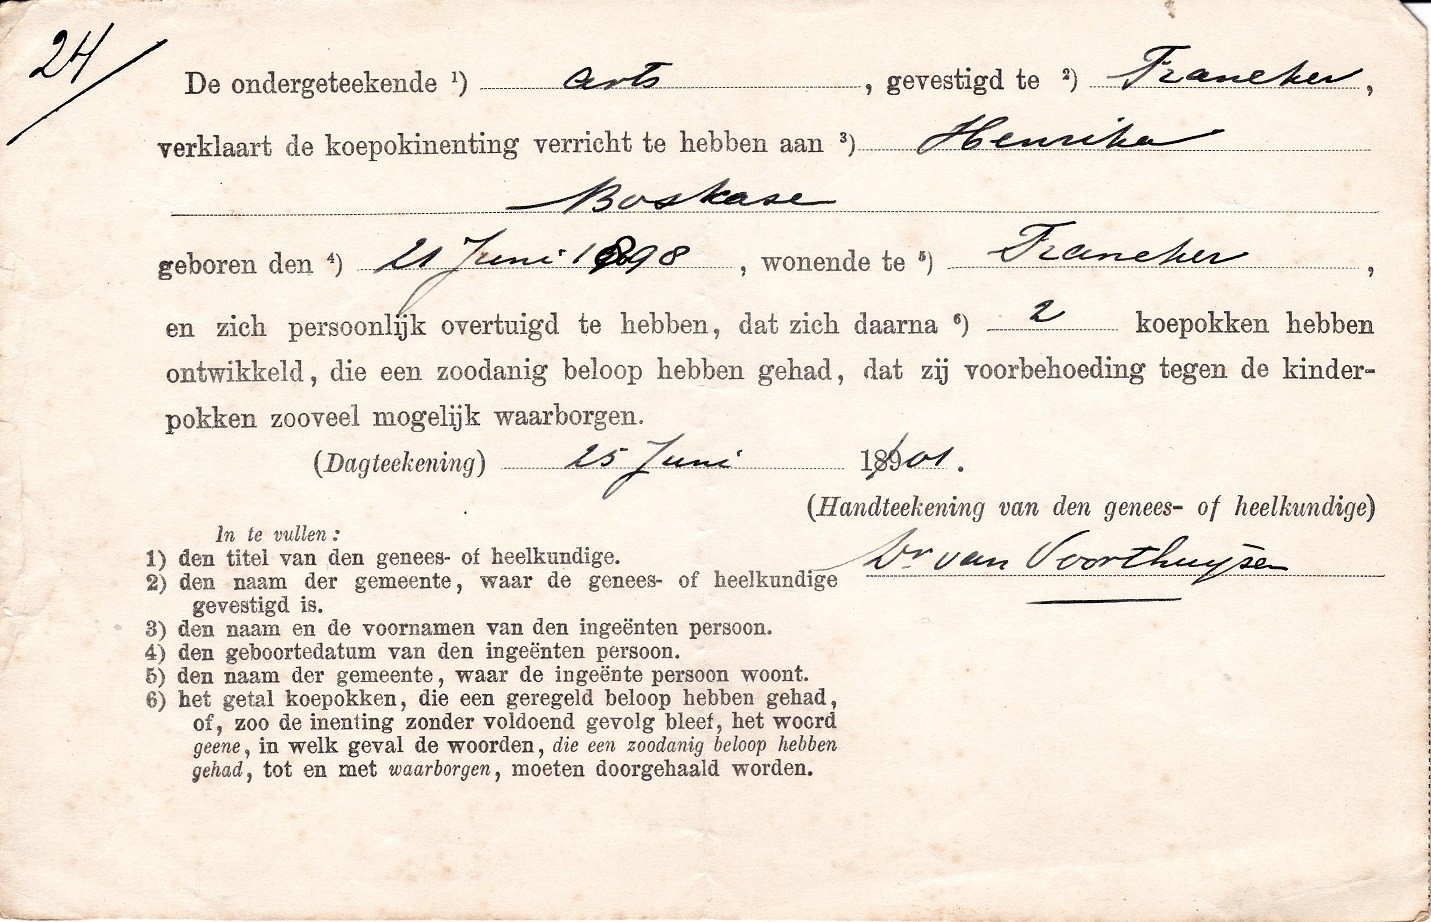 24/
De ondergeteekende ¹) arts, gevestigd te ²) Franeker,
verklaart de koepokinenting verricht te hebben aan ³) Henrika
Boskase
geboren den ⁴) 21 Juni 1898, wonende te ⁵) Franeker,
en zich persoonlijk overtuigd te hebben, dat zich daarna ⁶) 2 koepokken hebben
ontwikkeld, die een zoodanig beloop hebben gehad, dat zij voorbehoeding tegen de kinder-
pokken zooveel mogelijk waarborgen.
(Dagteekening) 25 Juni 1901.
(Handteekening van den genees- of heelkundige)
Dr van Voorthuijsen
In te vullen:
1) den titel van den genees- of heelkundige.
2) den naam der gemeente, waar de genees- of heelkundige
gevestigd is.
3) den naam en de voornamen van den ingeënten persoon.
4) den geboortedatum van den ingeënten persoon.
5) den naam der gemeente, waar de ingeënte persoon woont.
6) het getal koepokken, die een geregeld beloop hebben gehad,
of, zoo de inenting zonder voldoend gevolg bleef, het woord
geene, in welk geval de woorden, die een zoodanig beloop hebben
gehad, tot en met waarborgen, moeten doorgehaald worden.